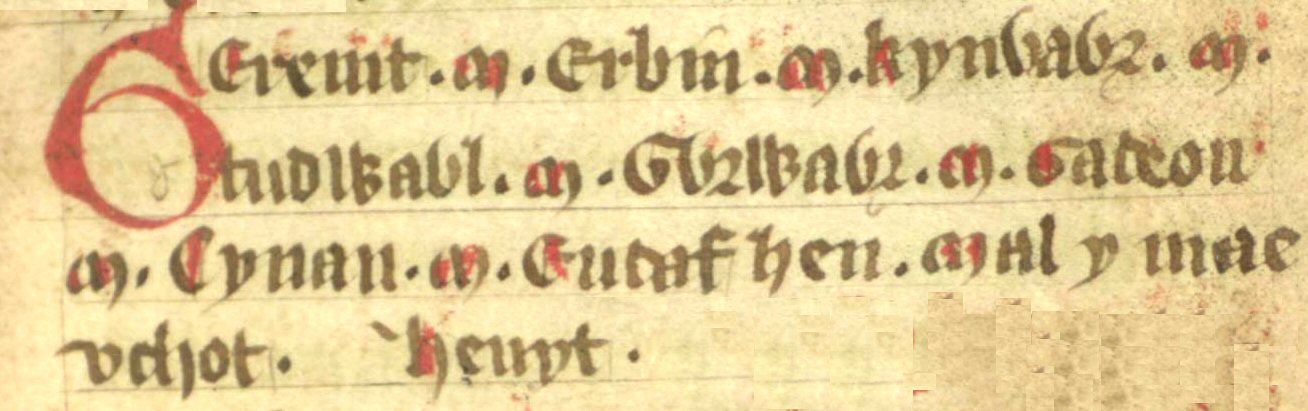 GEreint . m . Erbin . m . kynỽaỽr . m .
tudwaỽl . m . Gỽrwaỽr . m . Gadeon
m . Cynan . m . Eudaf hen . Mal y mae
vchot . heuyt .